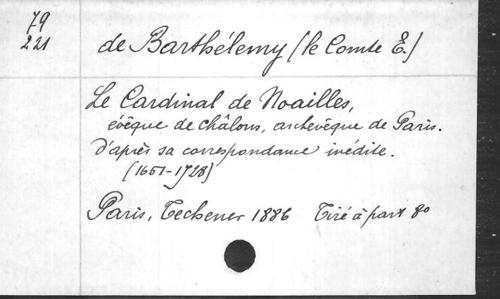 79
221
de Barthélemy (le Comte E.)
Le Cardinal de Noailles,
évêque de Châlons, archevêque de Paris.
D'après sa correspondance inédite.
(1651-1728)
Paris, Techener 1886 Tiré à part 8o